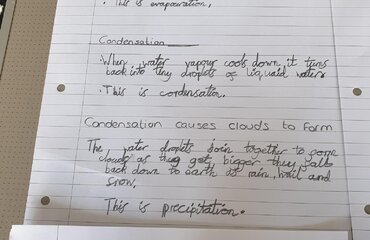 • This is evaporation.
Condensation
• When water vapour cools down it turns
back into tiny droplets of liquaid waters
• This is condensation.
Condensation causes clouds to form
The water droplets join together to
clouds as they get bigger they falls
back down to earth as rain, hail and
snow.
This is precipitation.